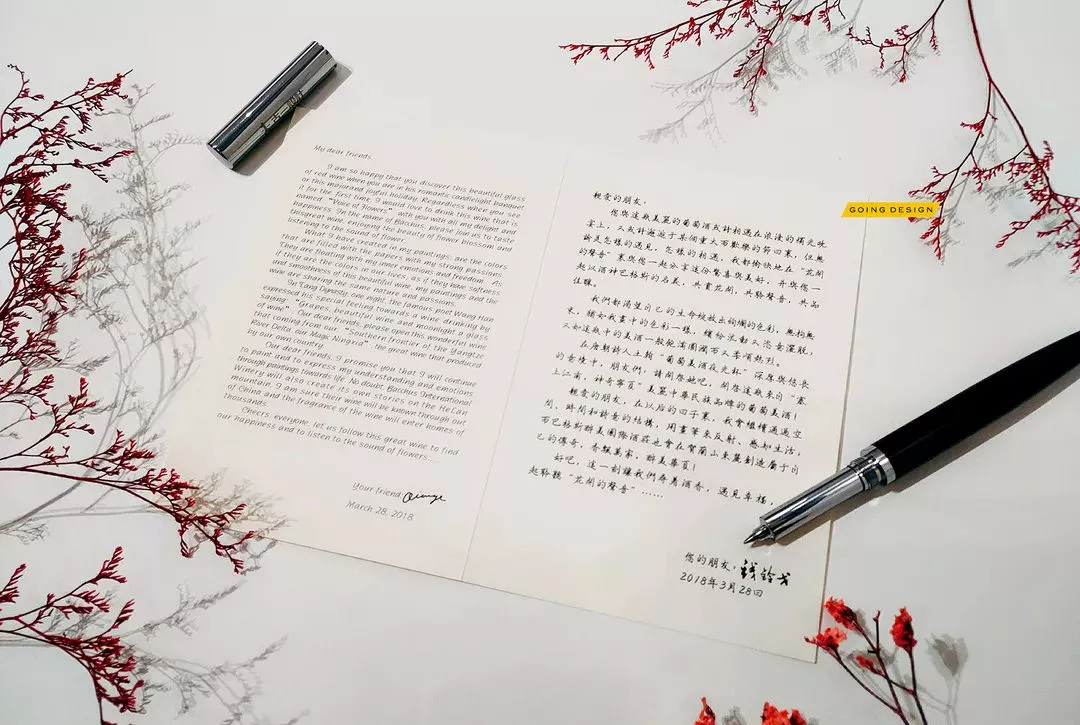 My dear friends,
I am so happy that you discover this beautiful glass
of red wine when you are in his romantic candlelight banquet
or this majorand joyful holiday. Regardless when you see
it for the first time, I would love to drink this wine that I
named, "Voice of flowers", with you in all my delight and
happiness. In the name of Bacchus, please join us to taste
thisgreat wine, enjoying the beauty of flower blossom and
listening to the sound of flower.
What I have created in my paintings, are the colors
that are filled with the papers with my strong passions
They are floating with my inner emotions and freedom. As
if they are the colors in our lives, as if they have softness
and smoothness of this beautiful wine, my paintings and the
wine are sharing the same nature and passions.
In Tang Dynasty, one night, the famous poet Wang Han
expressed his special feeling towards a wine drinking by
saying, "Grapes, beautiful wine and moonlight a glass
of wine". Our dear friends, please open this wonderful wine
that coming from our, "Southern frontier of the Yangtze
River Delta, our Magic Ningxia", the great wine that produced
by our own country.
Our dear friends, I promise you that I will continue
to paint and to express my understanding and emotions
through paintings towards life. No doubt, Bacchus International
Winery will also create its own stories on the HeLan
mountain. I am sure their wine will be known through out
of China and the fragrance of the wine will enter homes of
thousands.
Cheers, everyone, let us follow this great wine to find
our happiness and to listen to the sound of flowers......
Your friend,
March 28, 2018
親愛的朋友,
您與這瓶美麗的葡萄酒或許相遇在浪漫的燭光晚
宴上, 又或許邂逅于某個重大而歡樂的節日裏, 但無
論是怎樣的遇見, 怎樣的相遇, 我都愉快地在"花開
的聲音"裏與您一起分享這份驚喜與美好, 并與您一
起以酒神巴格斯的名義, 共賞花開, 共聆聲音, 共品
佳釀。
我們都渴望自己的生命綻放出絢爛的色彩, 無拘無
束, 猶如我畫中的色彩一樣, 繽紛流動又恣意灑脫,
又如這瓶中的美酒一般飽滿圓潤而又柔順熱烈。
在唐朝詩人王翰"葡萄美酒夜光杯"深厚與悠長
的意境中, 朋友們, 請開啓她吧, 開啓這瓶來自"塞
上江南, 神奇寧夏"美麗中華民族品牌的葡萄美酒!
親愛的朋友, 在以后的日子裏, 我會繼續通過空
間, 時間和詩意的結構, 用畫筆來反射, 感知生活;
而巴格斯醉美國際酒莊也會在賀蘭山東麓創造屬于自
己的傳奇, 香飄萬家, 醉美華夏!
好吧, 這一刻讓我們尋美酒香, 遇見幸福,
起聆聽"花開的聲音"......
您的朋友, 錢鈴戈
2018年3月28日
GOING DESIGN